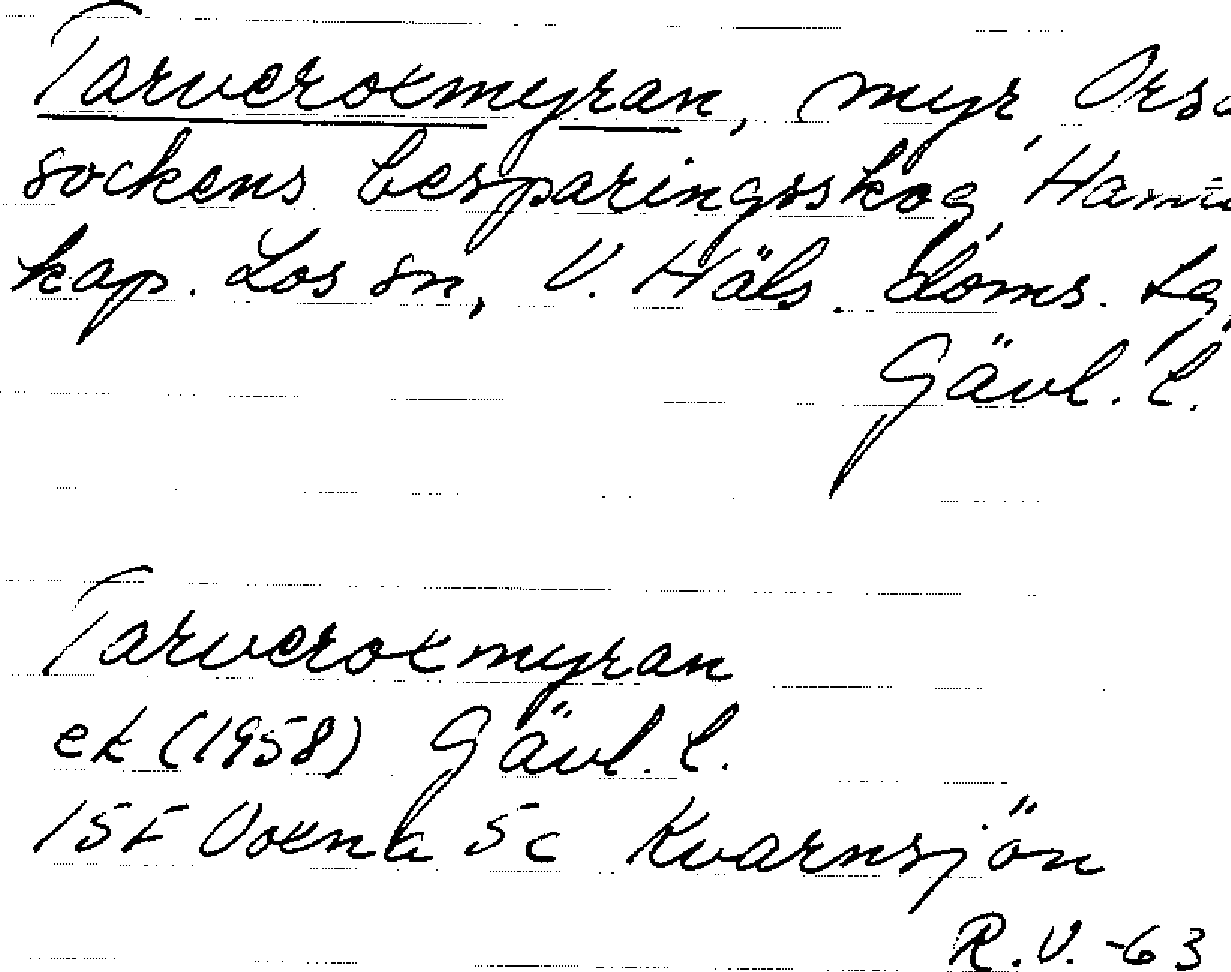 Tarveroxmyran, myr, Orsa
sockens besparingsskog, Hamra
kap. Los sn, V. Häls. doms. tg,
Gävl. l.
Tarveroxmyran
ek (1958) Gävl. l.
15F Voxna 5c Kvarnsjön
R.V. -63